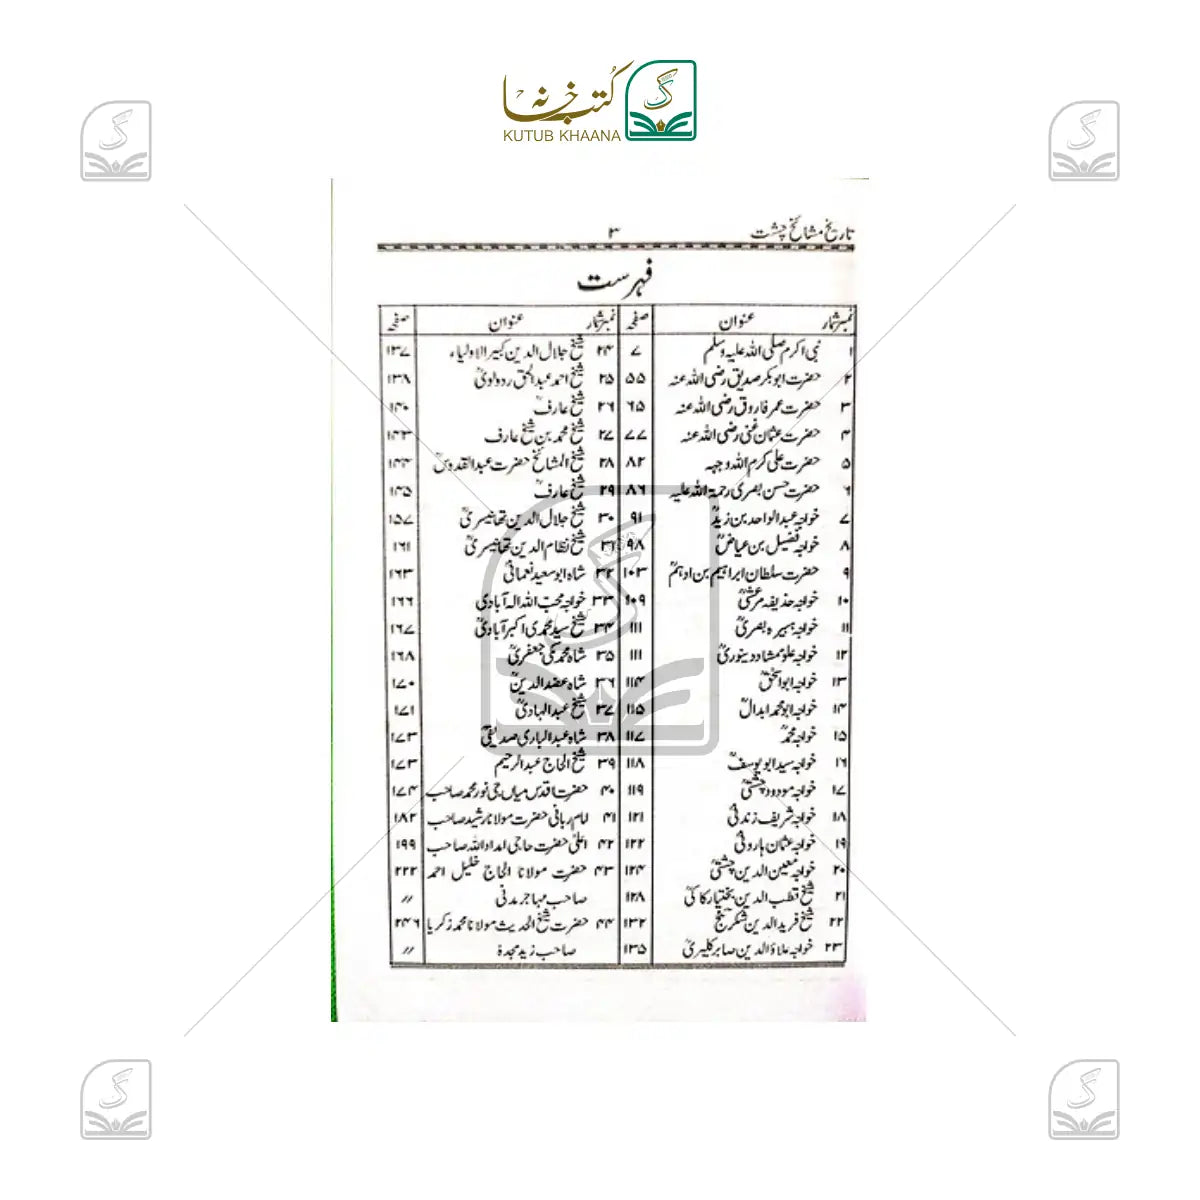 کتب خانہ
KUTUB KHAANA
تاریخ مشائخ چشت ۳
فہرست
نمبر شمار عنوان صفحہ نمبر شمار عنوان صفحہ
۱ نبی اکرم صلی اللہ علیہ وسلم ۷ ۲۴ شیخ جلال الدین کبیر الاولیاء ۱۳۷
۲ حضرت ابوبکر صدیق رضی اللہ عنہ ۵۵ ۲۵ شیخ احمد عبدالحق ردولویؒ ۱۳۸
۳ حضرت عمر فاروق رضی اللہ عنہ ۶۵ ۲۶ شیخ عارفؒ ۱۴۰
۴ حضرت عثمان غنی رضی اللہ عنہ ۷۷ ۲۷ شیخ محمد بن شیخ عارف ۱۴۳
۵ حضرت علی کرم اللہ وجہہ ۸۲ ۲۸ شیخ المشائخ حضرت عبدالقدوسؒ ۱۴۴
۶ حضرت حسن بصری رحمۃ اللہ علیہ ۸۶ ۲۹ شیخ عارفؒ ۱۴۵
۷ خواجہ عبدالواحد بن زیدؒ ۹۱ ۳۰ شیخ جلال الدین تھانیسریؒ ۱۵۷
۸ خواجہ فضیل بن عیاضؒ ۹۸ ۳۱ شیخ نظام الدین تھانیسریؒ ۱۶۱
۹ حضرت سلطان ابراہیم بن ادہمؒ ۱۰۳ ۳۲ شاہ ابوسعید نعمانیؒ ۱۶۳
۱۰ خواجہ حذیفہ مرعشیؒ ۱۰۹ ۳۳ خواجہ محب اللہ الہ آبادی ۱۶۶
۱۱ خواجہ ہبیرہ بصریؒ ۱۱۱ ۳۴ شیخ سید محمدی اکبر آبادیؒ ۱۶۷
۱۲ خواجہ علو ممشاد دینوریؒ ۱۱۱ ۳۵ شاہ محمد مکی جعفریؒ ۱۶۸
۱۳ خواجہ ابو اسحٰقؒ ۱۱۴ ۳۶ شاہ عضد الدینؒ ۱۷۰
۱۴ خواجہ ابو محمد ابدالؒ ۱۱۵ ۳۷ شیخ عبدالہادیؒ ۱۷۱
۱۵ خواجہ محمدؒ ۱۱۷ ۳۸ شاہ عبدالباری صدیقیؒ ۱۷۳
۱۶ خواجہ سید ابو یوسفؒ ۱۱۸ ۳۹ شیخ الحاج عبدالرحیم ۱۷۳
۱۷ خواجہ مودود چشتیؒ ۱۱۹ ۴۰ حضرت اقدس میاں جی نور محمد صاحب ۱۷۴
۱۸ خواجہ شریف زندنیؒ ۱۲۱ ۴۱ امام ربانی حضرت مولانا رشید صاحب ۱۸۲
۱۹ خواجہ عثمان ہارونیؒ ۱۲۲ ۴۲ اعلیٰ حضرت حاجی امداد اللہ صاحب ۱۹۹
۲۰ خواجہ معین الدین چشتیؒ ۱۲۴ ۴۳ حضرت مولانا الحاج خلیل احمد ۲۲۲
۲۱ شیخ قطب الدین بختیار کاکیؒ ۱۲۸ صاحب مہاجر مدنی 〃
۲۲ شیخ فرید الدین شکر گنجؒ ۱۳۲ ۴۴ حضرت شیخ الحدیث مولانا محمد زکریا ۲۴۶
۲۳ خواجہ علاؤ الدین صابر کلیریؒ ۱۳۵ صاحب زید مجدہ 〃